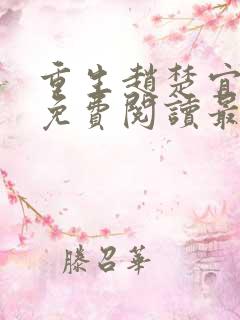 重生趙楚宜
免費閱讀最
滕召華